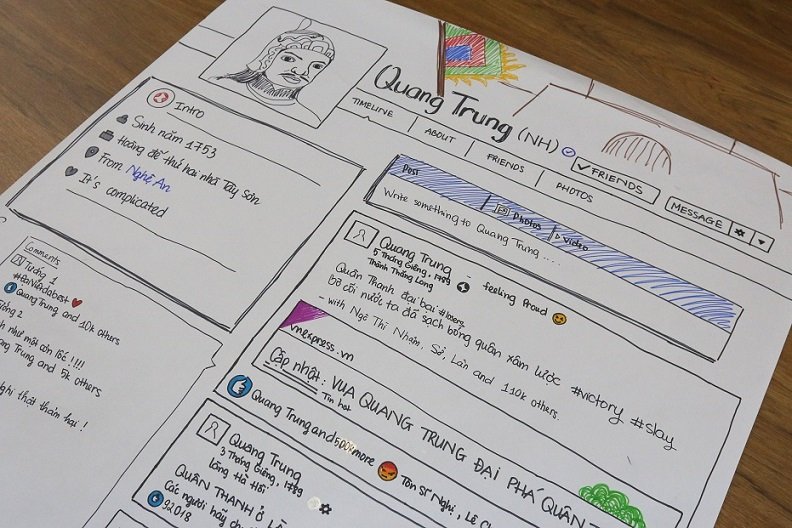 Quang Trung (NH)
TIMELINE
ABOUT
FRIENDS
PHOTOS
✓ FRIENDS
MESSAGE
Intro
Sinh năm 1753
Hoàng đế thứ hai nhà Tây Sơn
From Nghệ An
It's complicated
Post
Photos
Video
Write something to Quang Trung ....
Quang Trung - feeling Proud
5 Tháng Giêng, 1789
Thành Thăng Long
Quân Thanh đại bại #losers
bờ cõi nước ta đã sạch bóng quân xâm lược #victory #slay
- with Ngô Thì Nhậm, Sở, Lân and 110k others.
vnexpress.vn
Cập nhật: VUA QUANG TRUNG ĐẠI PHÁ QUÂN
Tin hot
Quang Trung and 5008 more
Tôn Sĩ Nghị, Lê
Quang Trung
3 Tháng Giêng, 1789
Làng Hà Hồi
QUÂN THANH Ở
Các người hãy
92018
Comments
Tướng 1
Quang Trung and 10k others
2
như một cơn lốc !!!!
Trung and 5k others
thật thảm hại !